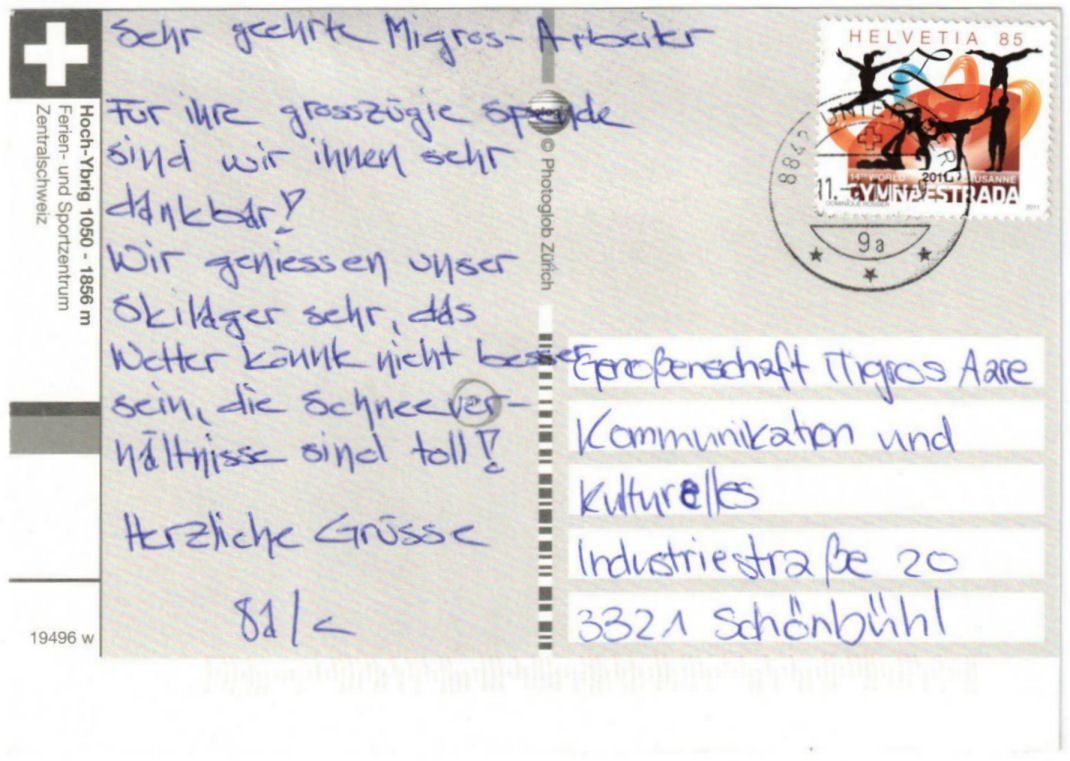 Sehr geehrte Migros-Arbeiter
Für ihre grosszügie Spende
sind wir ihnen sehr
dankbar!
Wir geniessen unser
Skilager sehr, das
Wetter könnte nicht besser
sein, die Schneever-
hältnisse sind toll!
Herzliche Grüsse
8a/c
Hoch-Ybrig 1050 - 1856 m
Ferien- und Sportzentrum
Zentralschweiz
19496 w
© Photoglob Zürich
HELVETIA 85
14TH WORLD 2011 LAUSANNE
GYMNAESTRADA
2011
8842
11.-
9a
Genoßenschaft Migros Aare
Kommunikation und
Kulturelles
Industriestraße 20
3321 Schönbühl